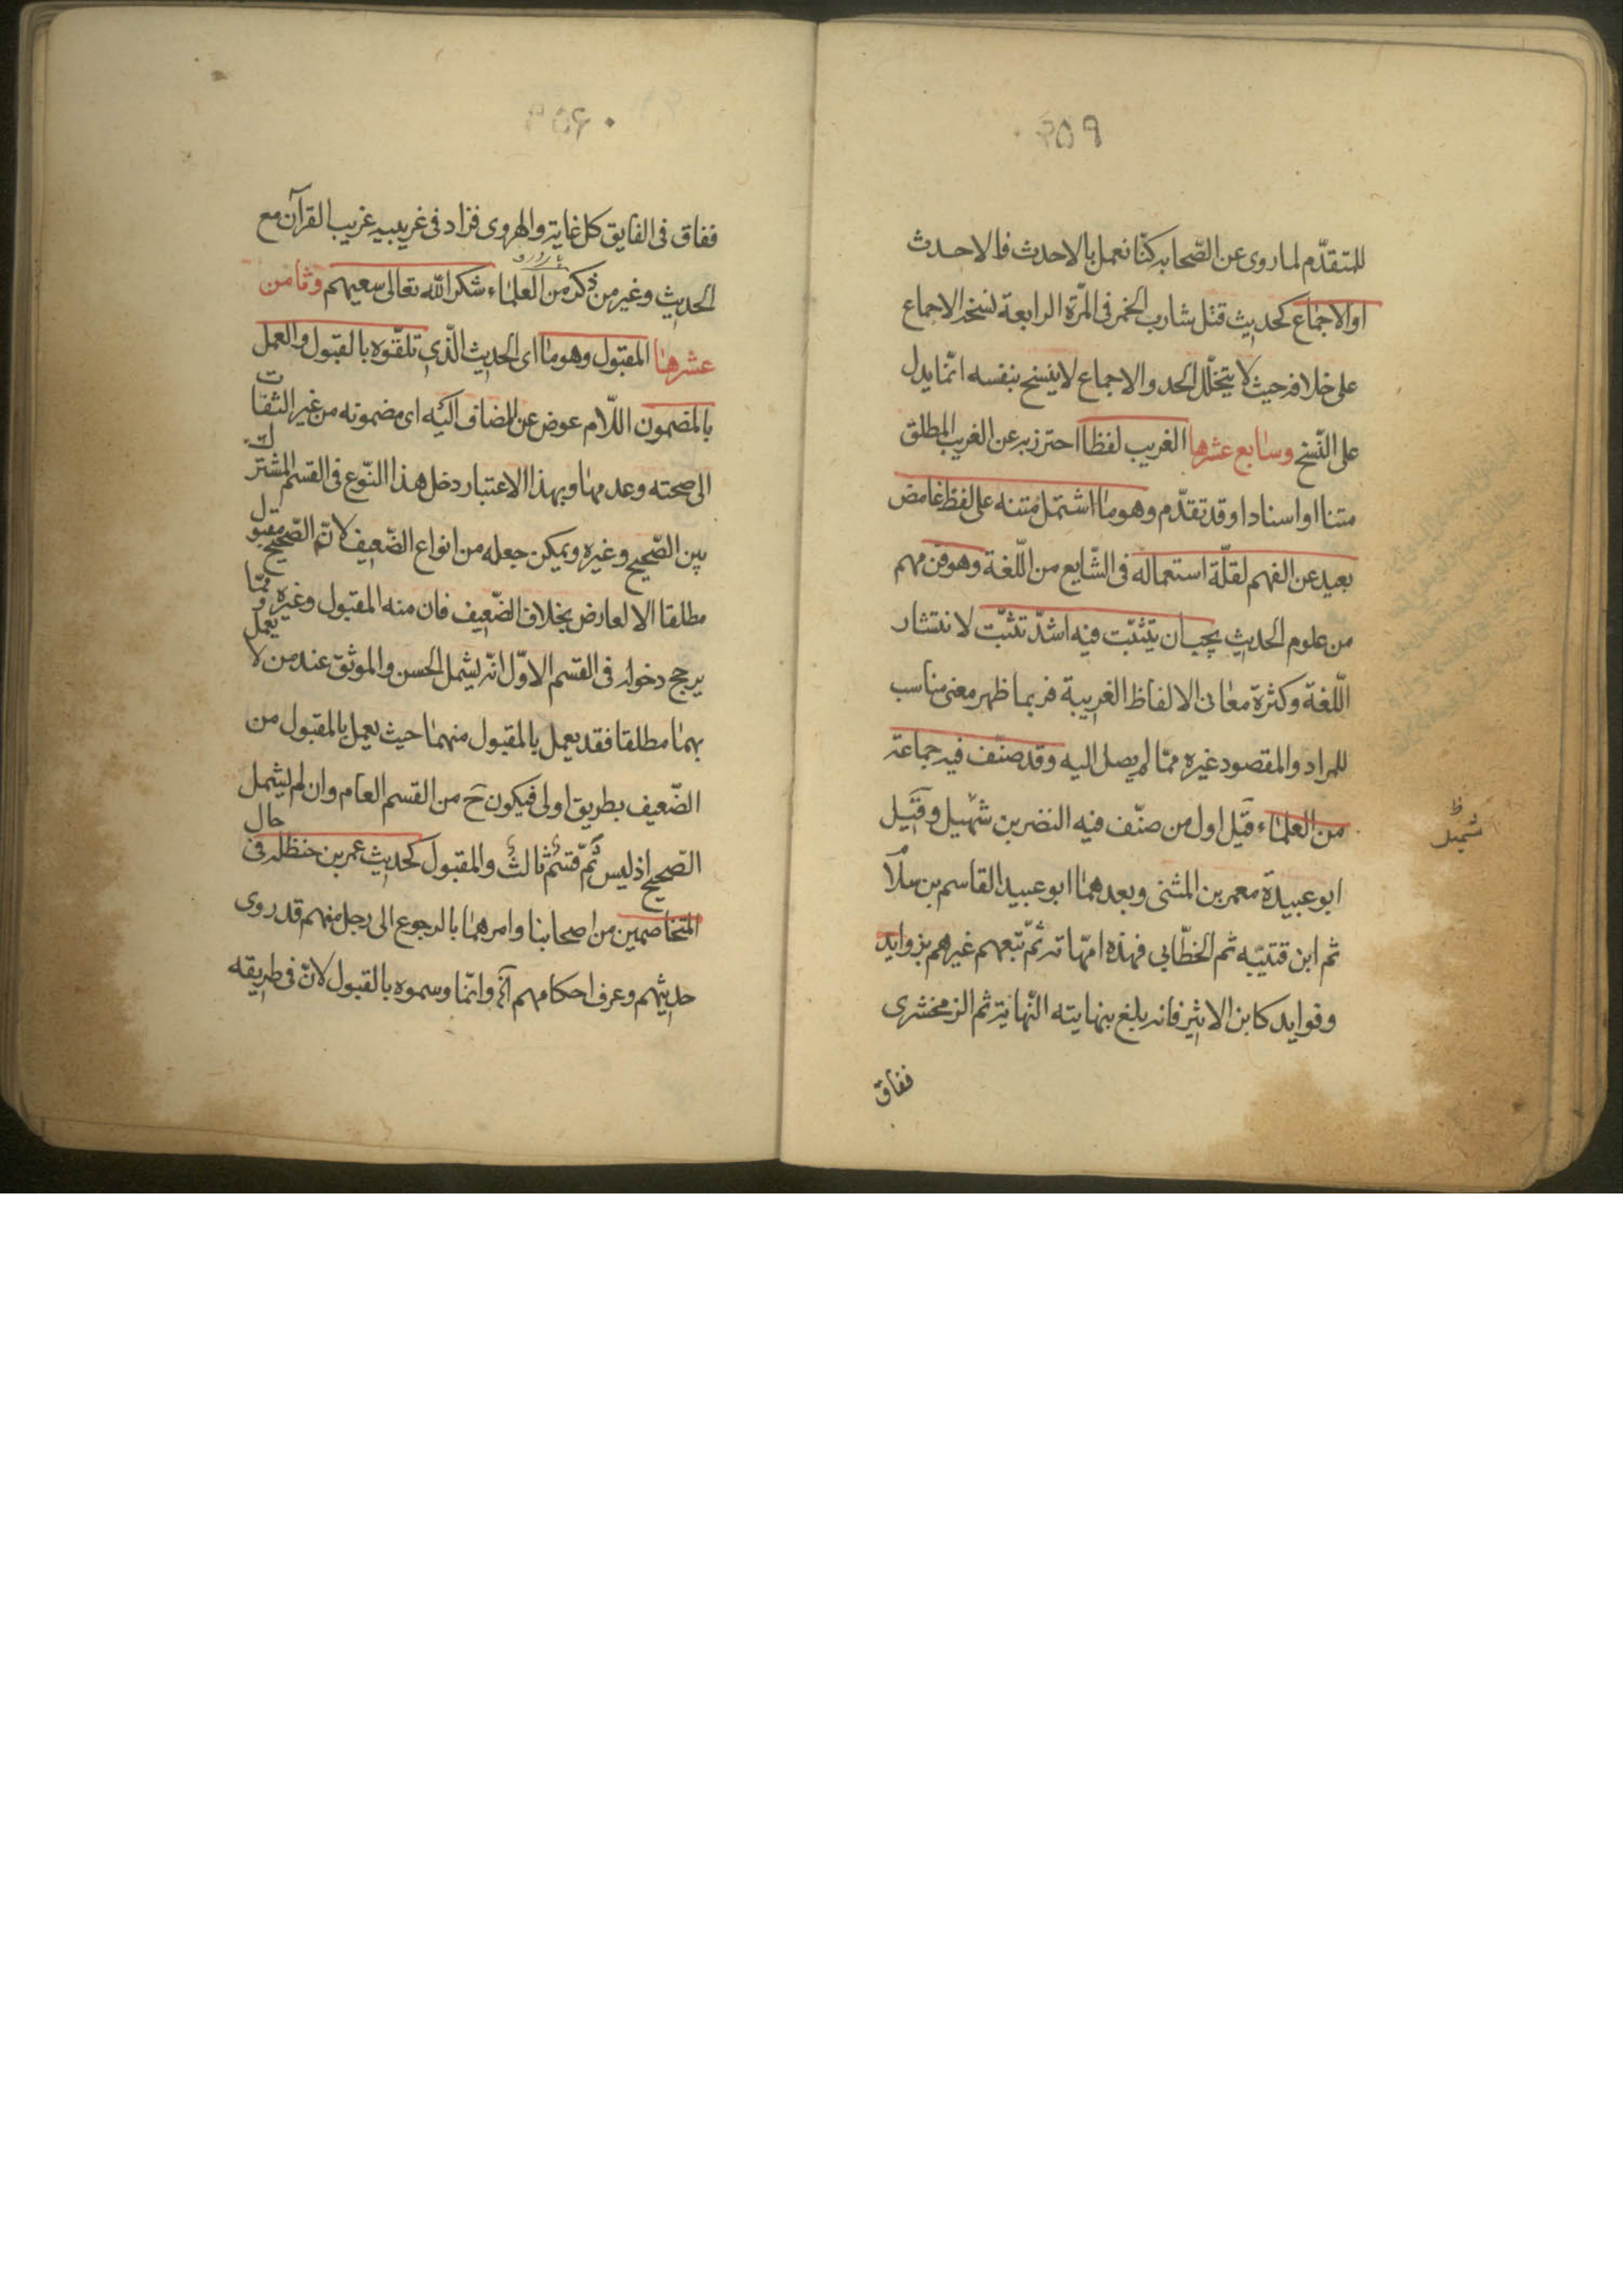 ٢٥٩
للمتقدّم لما روى عن الصّحابه كنّا نعمل بالاحدث فالاحدث
او الاجماع كحديث قتل شارب الخمر فى المرّة الرابعة نسخه الاجماع
على خلافه حيث لا يتخلّل الحد والاجماع لا ينسخ بنفسه انّما يدل
على النّسخ وسابع عشرها الغريب لفظا احترز به عن الغريب المطلق
متنا او اسنادا وقد تقدّم وهو ما اشتمل متنه على لفظ غامض
بعيد عن الفهم لقلّة استعماله فى الشّايع من اللّغة وهو فن مهم
من علوم الحديث يجب ان يتثبّت فيه اشدّ تثبّت لانتشار
اللّغة وكثرة معانى الالفاظ الغريبة فربما ظهر معنى مناسب
للمراد والمقصود غيره ممّا لم يصل اليه وقد صنّف فيه جماعة
من العلماء قيل اول من صنّف فيه النضر بن شهيل وقيل
شميل ظ
ابو عبيدة معمر بن المثنى وبعدهما ابو عبيد القاسم بن سلام
ثم ابن قتيبه ثم الخطّابى فهذه امّهاته ثمّ تبعهم غيرهم بزوايد
وفوايد كابن الاثير فانه بلغ بنهايته النّهاية ثم الزمخشرى
ففاق
٢٥٦٠
ففاق فى الفايق كل غاية والهروى فزاد فى غريبيه غريب القرآن مع
الحديث وغير من ذكر من العلماء شكر الله تعالى سعيهم وثامن
عشرها المقبول وهو ما اى الحديث الّذى تلقّوه بالقبول والعمل
بالمضمون اللّام عوض عن المضاف اليه اى مضمونه من غير التفات
الى صحته وعدمها وبهذا الاعتبار دخل هذا النّوع فى القسم المشترك
بين الصّحيح وغيره ويمكن جعله من انواع الضّعيف لانّ الصّحيح مقبول
مطلقا الا لعارض بخلاف الضّعيف فان منه المقبول وغيره وممّا
يرجح دخوله فى القسم الاوّل انّه يشمل الحسن والموثق عند من لا يعمل
بهما مطلقا فقد يعمل بالمقبول منهما حيث يعمل بالمقبول من
الضّعيف بطريق اولى فيكون ح من القسم العام وان لم يشمل
الصّحيح اذ ليس ثمّ قسم ثالث والمقبول كحديث عمر بن حنظله فى حال
المتخاصمين من اصحابنا وامرهما بالرجوع الى رجل منهم قد روى
حديثهم وعرف احكامهم آه وانّما وسموه بالقبول لانّ فى طريقه